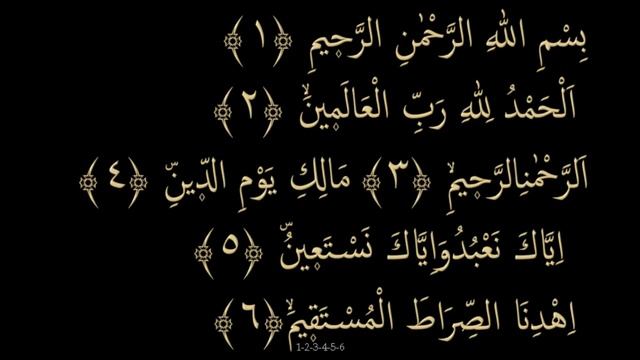 بِسْمِ اللّٰهِ الرَّحْمٰنِ الرَّح۪يمِ ﴿١﴾
اَلْحَمْدُ لِلّٰهِ رَبِّ الْعَالَم۪ينَۙ ﴿٢﴾
اَلرَّحْمٰنِالرَّح۪يمِۙ ﴿٣﴾ مَالِكِ يَوْمِ الدّ۪ينِۜ ﴿٤﴾
اِيَّاكَ نَعْبُدُوَاِيَّاكَ نَسْتَع۪ينُۜ ﴿٥﴾
اِهْدِنَا الصِّرَاطَ الْمُسْتَق۪يمَۙ ﴿٦﴾
1-2-3-4-5-6